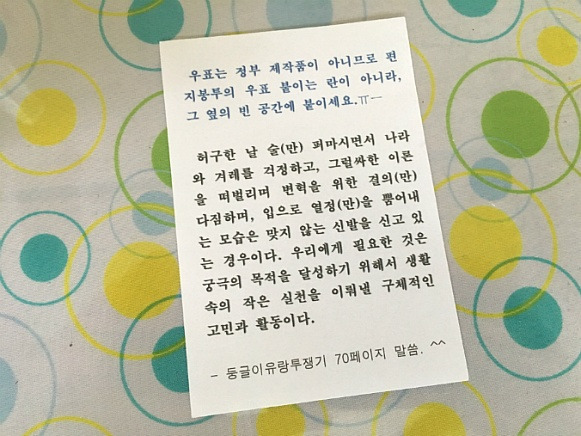 우표는 정부 제작품이 아니므로 편
지봉투의 우표 붙이는 란이 아니라,
그 옆의 빈 공간에 붙이세요.ㅠㅡ
허구한 날 술(만) 퍼마시면서 나라
와 겨레를 걱정하고, 그럴싸한 이론
을 떠벌리며 변혁을 위한 결의(만)
다짐하며, 입으로 열정(만)을 뿜어내
는 모습은 맞지 않는 신발을 신고 있
는 경우이다. 우리에게 필요한 것은
궁극의 목적을 달성하기 위해서 생활
속의 작은 실천을 이뤄낼 구체적인
고민과 활동이다.
- 둥글이유랑투쟁기 70페이지 말씀. ^^